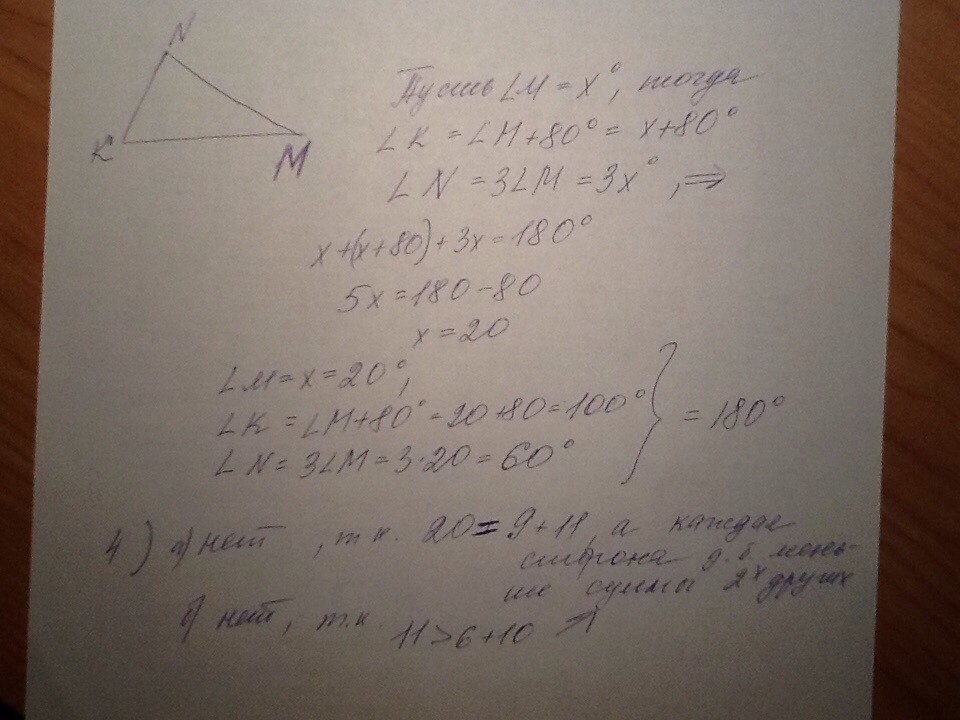 N
K
M
Пусть ∠M = x°, тогда
∠K = ∠M+80° = x+80°
∠N = 3∠M = 3x°, ⇒
x+(x+80)+3x=180°
5x=180-80
x=20
∠M=x=20°,
∠K=∠M+80°=20+80=100°
∠N=3∠M=3·20=60°
=180°
4) а) нет, т.к. 20=9+11, а каждая
сторона д.б. мень-
ше суммы 2х других
б) нет, т.к. 11>6+10